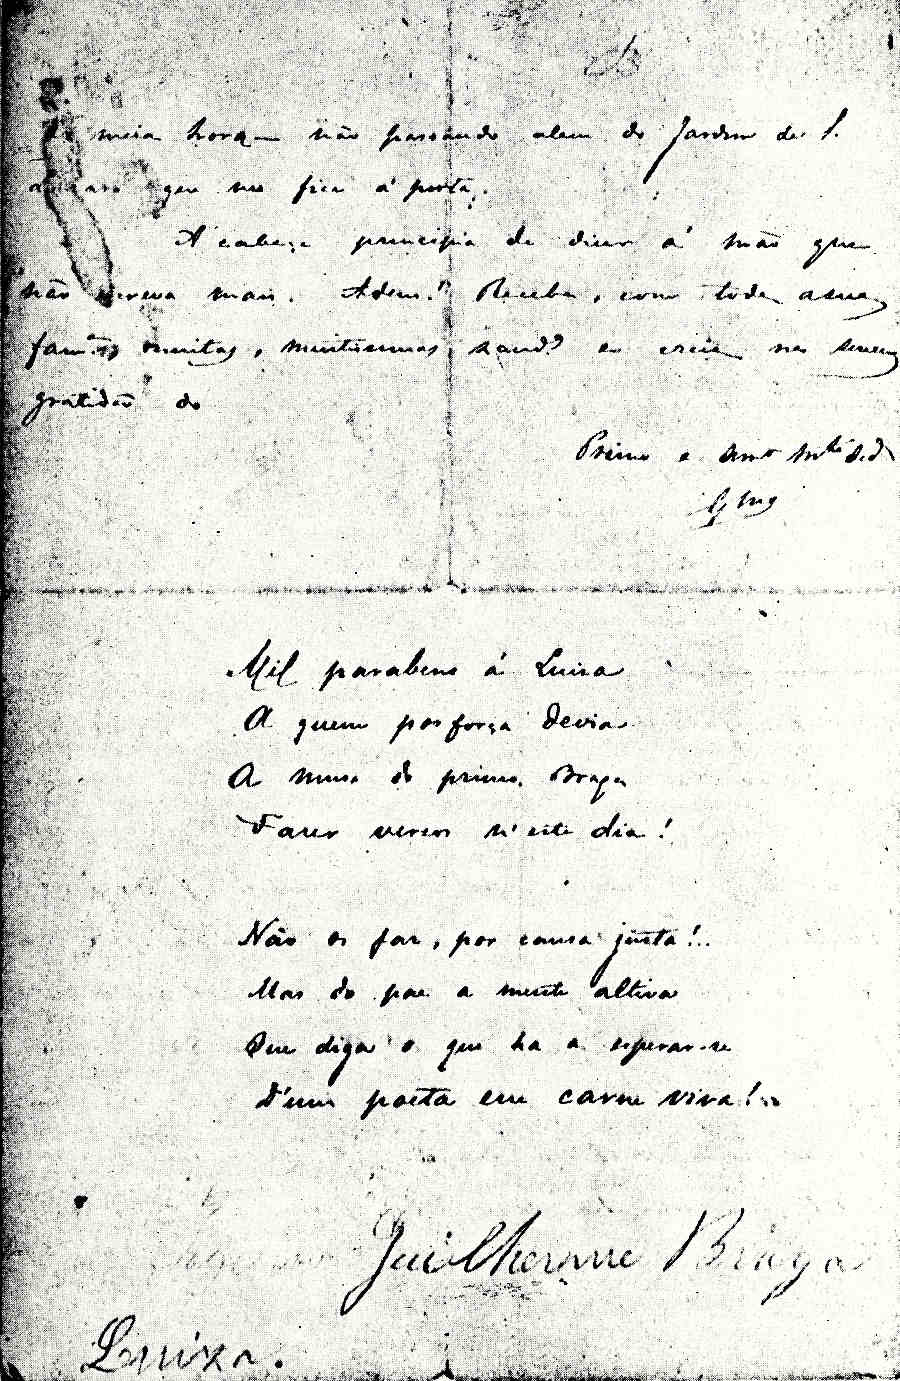 meia hora — não passando alem do Jardim de S.
que me fica á porta.
A cabeça principia de dizer á mão que
não escreva mais. Adeus! Receba, com toda a sua
fam.ª muitas, muitissimas saud.es e creia na
gratidão do
Primo e am.º m.to
Gme
Mil parabens á Luiza
A quem por força devia
A musa do primo Braga
Fazer versos n'este dia!
Não os faz, por causa justa!..
Mas do pae a mente altiva
Que diga o que ha a esperar-se
D'um poeta em carne viva!..
Guilherme Braga
Luiza.